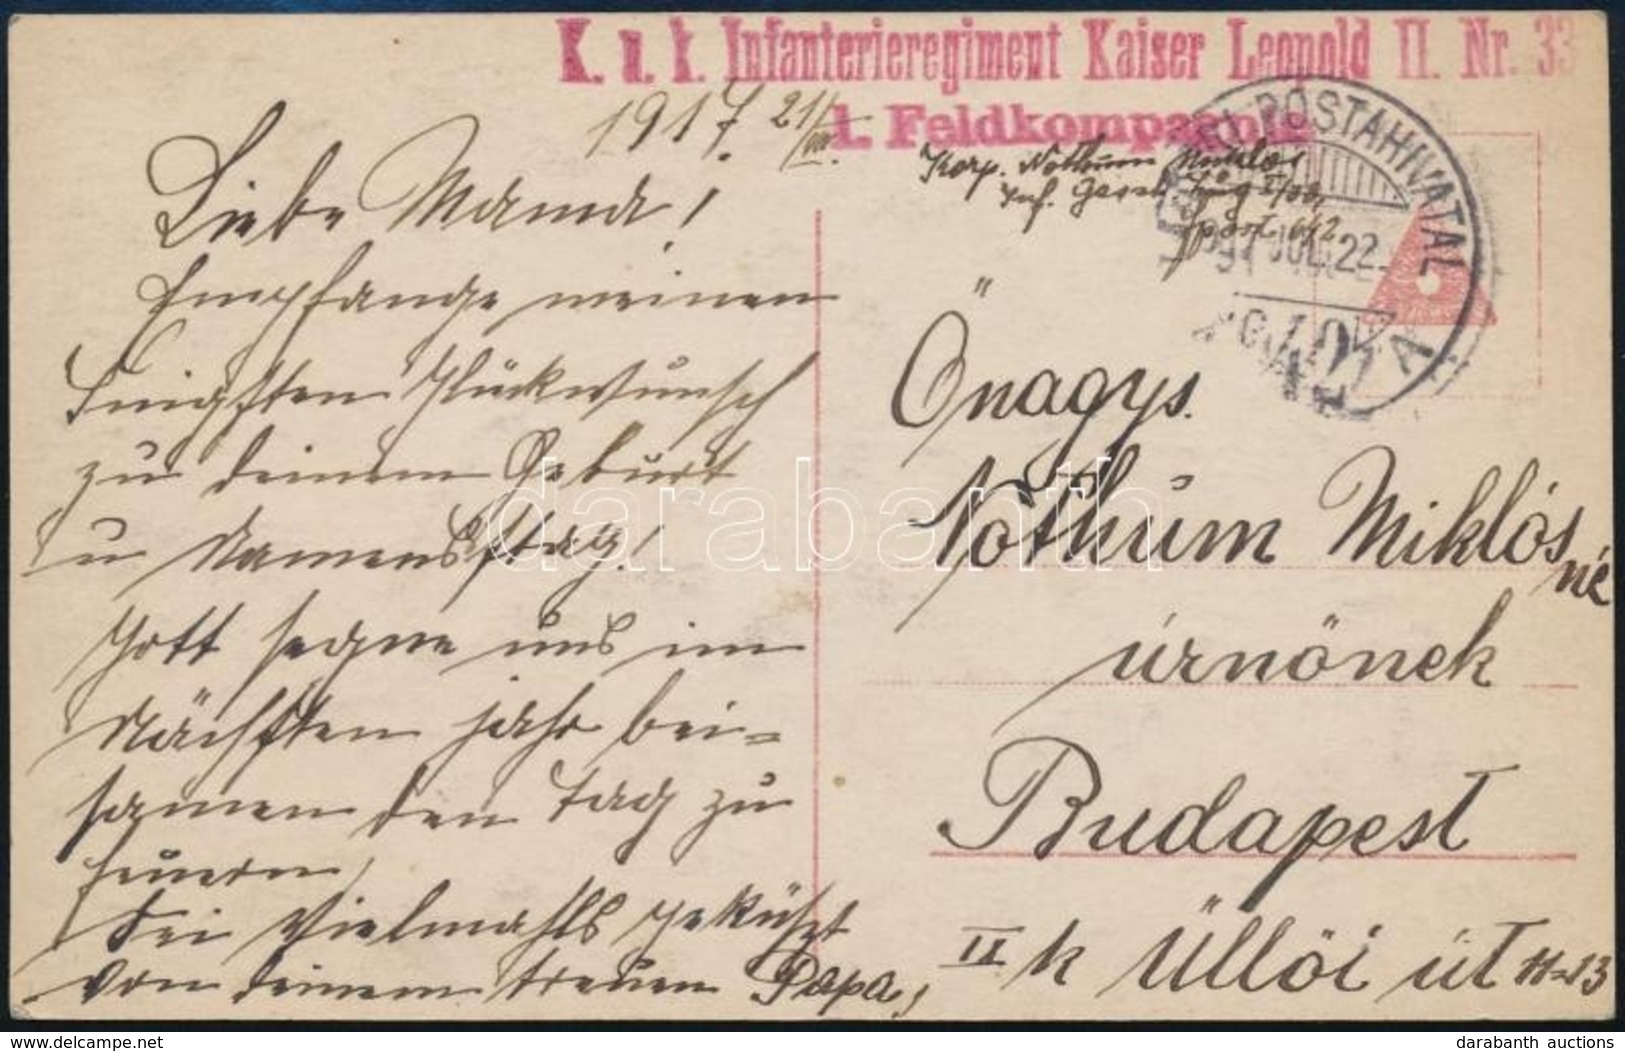 K. u. k. Infanterieregiment Kaiser Leopold II. Nr. 33
1. Feldkompagnie
1917 21/VII.
Korp. Nothum Miklos
Inf.
post 642
TÁBORI POSTAHIVATAL
917 JUL. 22
A
Liebe Mama!
Empfange meinen
Innigsten Glückwunsch
zu deinem Geburt
u Namenstag!
Gott segne uns im
Nächsten Jahr bei-
samen den Tag zu
feuern,
Sei Vielmahls geküszt
von deinem treuen Papa,
Önagys.
Nothum Miklós
né
úrnőnek
Budapest
IX k Üllői út 11-13
darabanth
delcampe.net
darabanth auctions